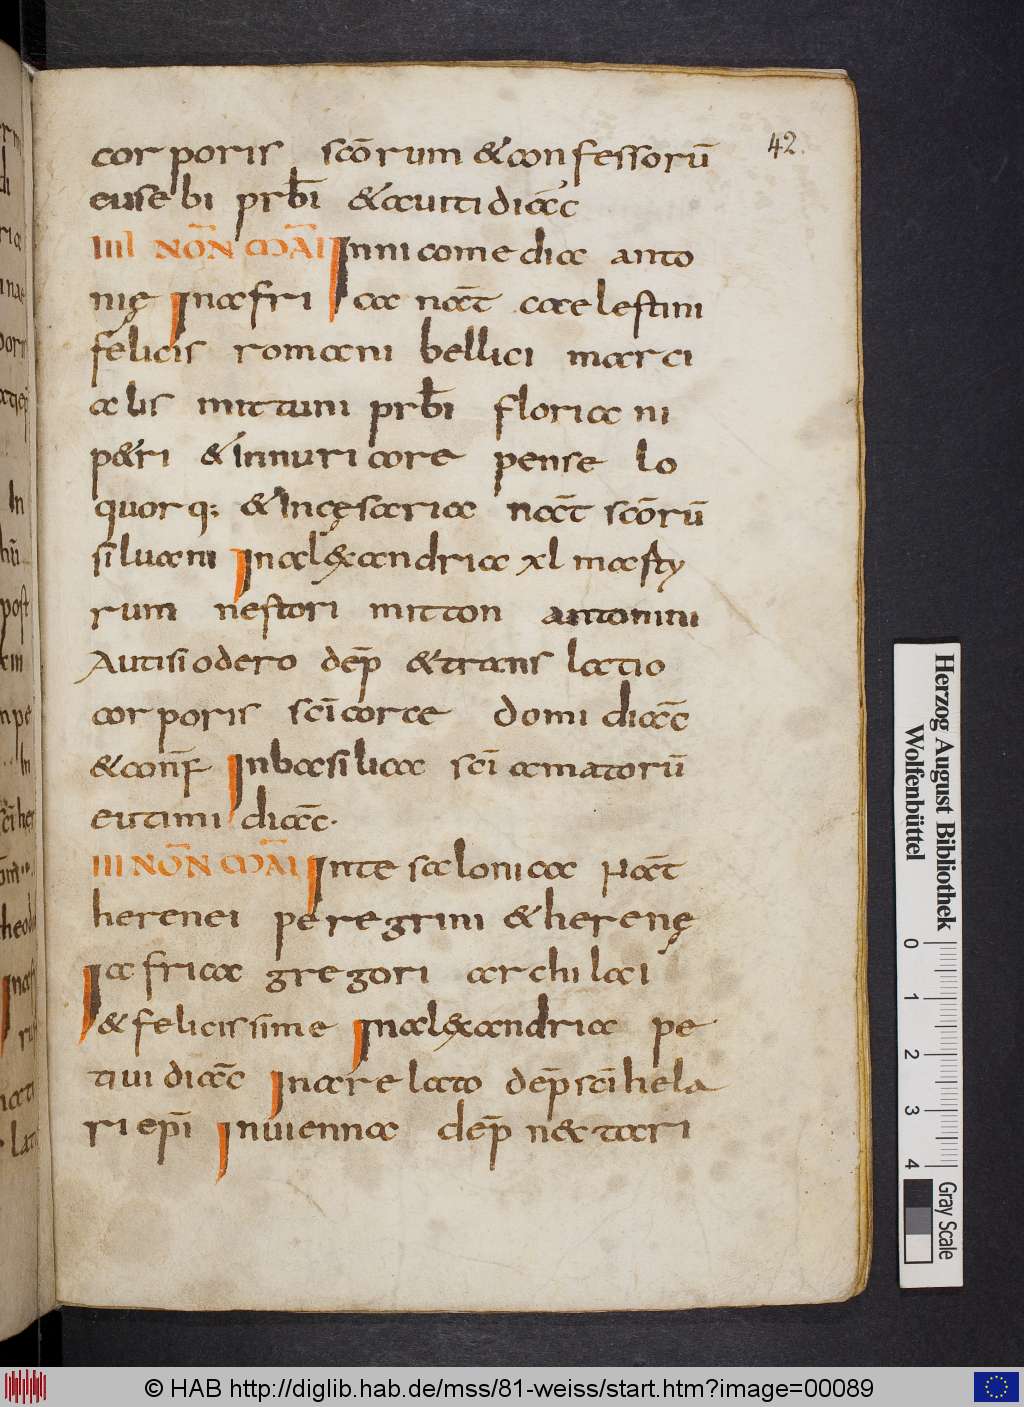 42.
corporis scōrum & confessorū
eusebi prƀi & auiti diac̄
IIII NON̄ MAĪ In nicomedia anto
nię In afri ca nat̄ caelestini
felicis romani bellici marci
alis mittuni prƀi floriani
p&ri & in nuricore pense lo
quorq; & In cęsaria nat̄ scōrū
siluani In al&xandria xl masty
rum nestori mitton antonini
Autisiodero dep̄ & trans latio
corporis scī corce domi diac̄
& conf̄ In basilica scī amatorū
eutimi diac̄.
III NON̄ MAĪ In tesalonica Nat̄
herenei peregrini & herenę
I africa gregori archilaci
& felicissime In al&xandria pe
tiui diac̄ In arelato dep̄ scī hela
ri ep̄i In uienna dep̄ nectari
Herzog August Bibliothek
Wolfenbüttel
0 1 2 3 4
Gray Scale
© HAB http://diglib.hab.de/mss/81-weiss/start.htm?image=00089